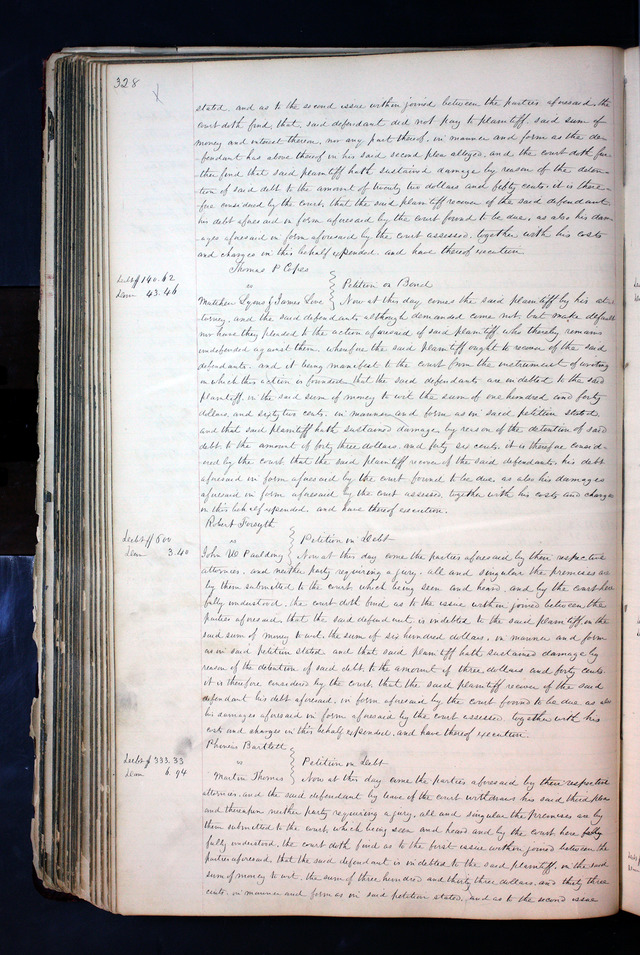 328
stated, and as to the second issue within joined between the parties aforesaid, the
court doth find, that, said defendant did not pay to plaintiff, said sum of
money and interest thereon, nor any part thereof, in manner and form as the de-
fendant has above thereof in his said second plea alleged, and the court doth fur-
ther find that said plaintiff hath sustained damage by reason of the deten-
tion of said debt to the amount of twenty two dollars and fifty cents, it is there-
fore considered by the court, that the said plaintiff recover of the said defendant
his debt aforesaid in form aforesaid by the court found to be due, as also his dam-
ages aforesaid in form aforesaid by the court assessed, together with his costs
and charges in this behalf expended, and have thereof execution
Thomas P Copes
Debt $ 140.62 vs Petition on Bond
Dam 43.46
Lyons & James Love Now at this day, comes the said plaintiff by his at-
torney, and the said defendants although demanded came not, but make default
nor have they pleaded to the action aforesaid of said plaintiff who thereby remains
undefended against them, wherefore the said plaintiff ought to recover of the said
defendants, and it being manifest to the court from the instrument of writing
on which this action is founded, that the said defendants are indebted to the said
plaintiff, in the said sum of money to wit the sum of one hundred and forty
dollars, and sixty two cents, in manner and form as in said petition stated,
and that said plaintiff hath sustained damage, by reason of the detention of said
debt to the amount of forty three dollars and forty six cents, it is therefore consid-
ered by the court, that the said plaintiff recover of the said defendants, his debt
aforesaid in form aforesaid by the court found to be due as also his damages
aforesaid in form aforesaid by the court assessed, together with his costs and charges
in this behalf expended, and have thereof execution.
Robert Forsyth
Debt $ 600 vs Petition in Debt
Dam 3.40
John W Paulding Now at this day come the parties aforesaid by their respective
attornies, and neither party requiring a jury, all and singular the premises are
by them submitted to the court which being seen and heard, and by the court here
fully understood, the court doth find as to the issue within joined between the
parties aforesaid, that the said defendant is indebted to the said plaintiff, in the
said sum of money to wit, the sum of six hundred dollars, in manner and form
as in said petition stated and that said plaintiff hath sustained damage by
reason of the detention of said debt, to the amount of three dollars and forty cents,
it is therefore considered by the court, that the said plaintiff recover of the said
defendant his debt aforesaid, in form aforesaid by the court found to be due as also
his damages aforesaid in form aforesaid by the court assessed, together with his
costs and charges in this behalf expended, and have thereof execution.
Phineas Bartlett
Debt $ 333.33 vs Petition in Debt
Dam 6.94
Martin Thomas Now at this day come the parties aforesaid by their respective
attornies, and the said defendant by leave of the court withdraws his said third plea
and thereupon neither party requiring a jury, all and singular the premises are by
them submitted to the court, which being seen and heard and by the court here fully
fully understood, the court doth find as to the first issue within joined between the
parties aforesaid, that the said defendant is indebted to the said plaintiff, in the said
sum of money to wit, the sum of three hundred and thirty three dollars, and thirty three
cents, in manner and form as in said petition stated, and as to the second issue